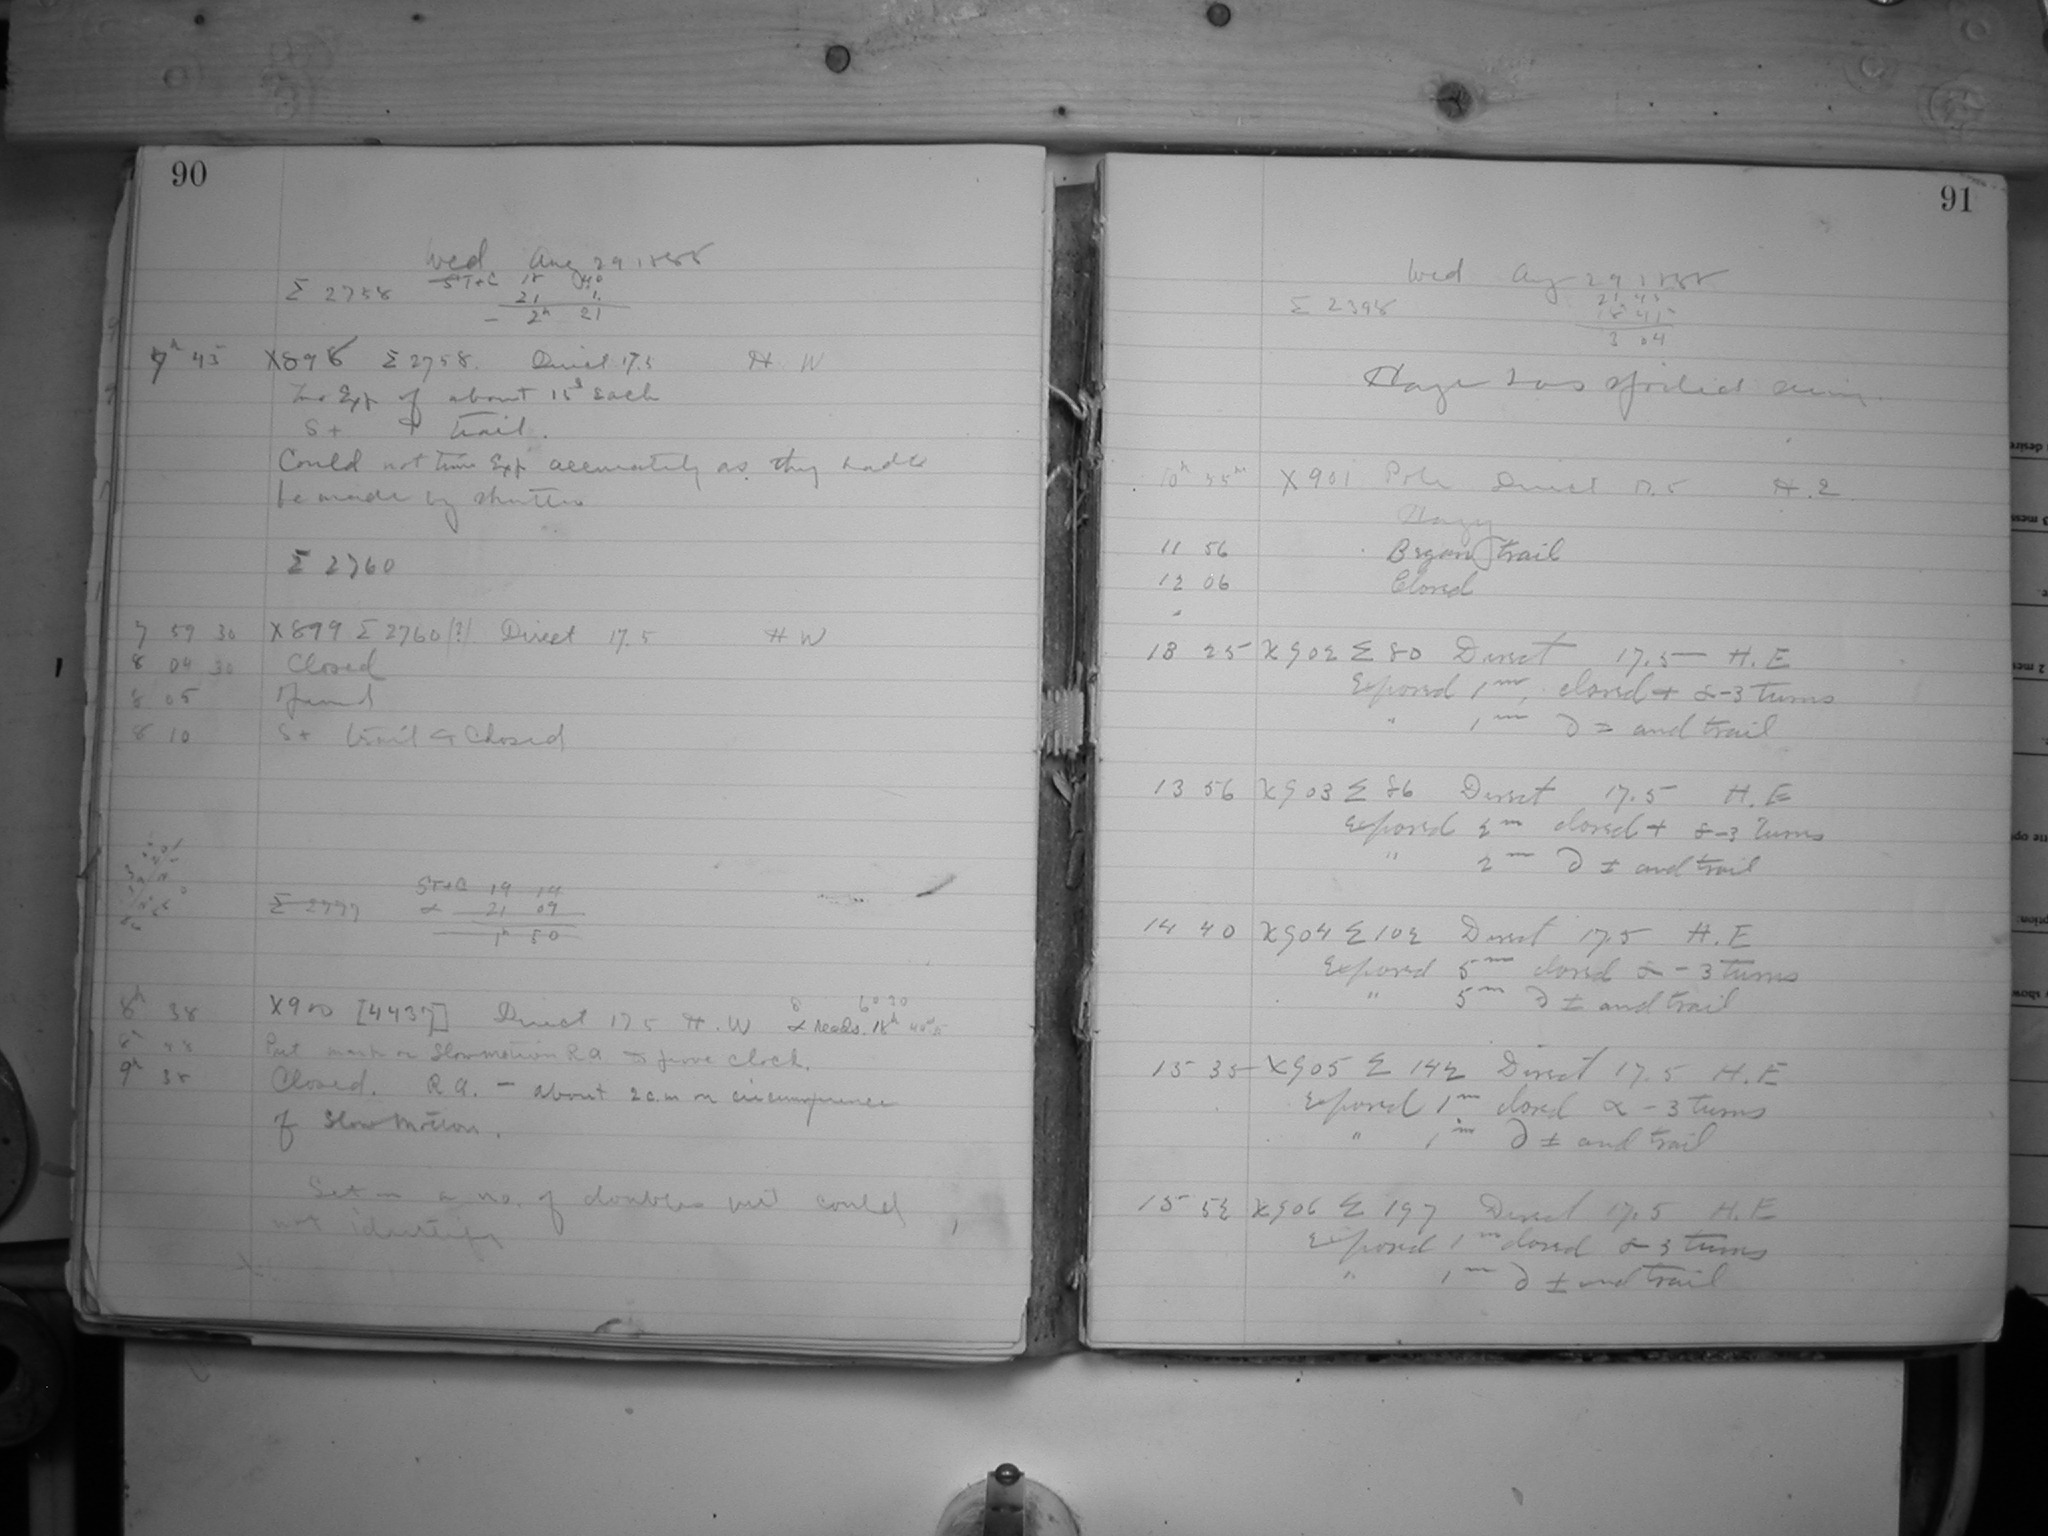 90
Wed Aug 29 1888
Σ 2758 ST+C 18 40
21 1
- 2h 21
7h 45 X898 Σ 2758. Direct 17.5 H. W
Two Exp of about 15s Each
δ + + trail.
Could not time Exp accurately as they had to
be made by shutter
Σ 2760
7 59 30 X899 Σ 2760 (?) Direct 17.5 H W
8 04 30 Closed
8 05
8 10 δ + trail & Closed
Σ 2777 ST+C 19 14
α 21 09
1h 50
8h 38 X900 [4437] Direct 17.5 H. W α reads. 18h
Put mark on Slow motion R A to prove clock.
9h 38 Closed. R A. - about 2 c.m on circumference
of Slow Motion.
Set on a no. of doubles but could
not identify
91
Wed Aug 29 1888
Σ 2398 21 45
18 41
3 04
Haze has spoiled seeing.
10h 55m X901 Pole Direct 17.5 H. 2
Hazy
11 56 Began trail
12 06 Closed
13 25 X902 Σ 80 Direct 17.5 H. E
Exposed 1m, closed + α -3 turns
" 1m ∂ ± and trail
13 56 X903 Σ 86 Direct 17.5 H. E
Exposed 2m closed + α -3 Turns
" 2m ∂ ± and trail
14 40 X904 Σ 102 Direct 17.5 H. E
Exposed 5m closed α - 3 turns
" 5m ∂ ± and trail
15 35 X905 Σ 142 Direct 17.5 H. E
Exposed 1m closed α - 3 turns
" 1m ∂ ± and trail
15 52 X906 Σ 197 Direct 17.5 H. E
Exposed 1m closed α - 3 turns
" 1m ∂ ± and trail